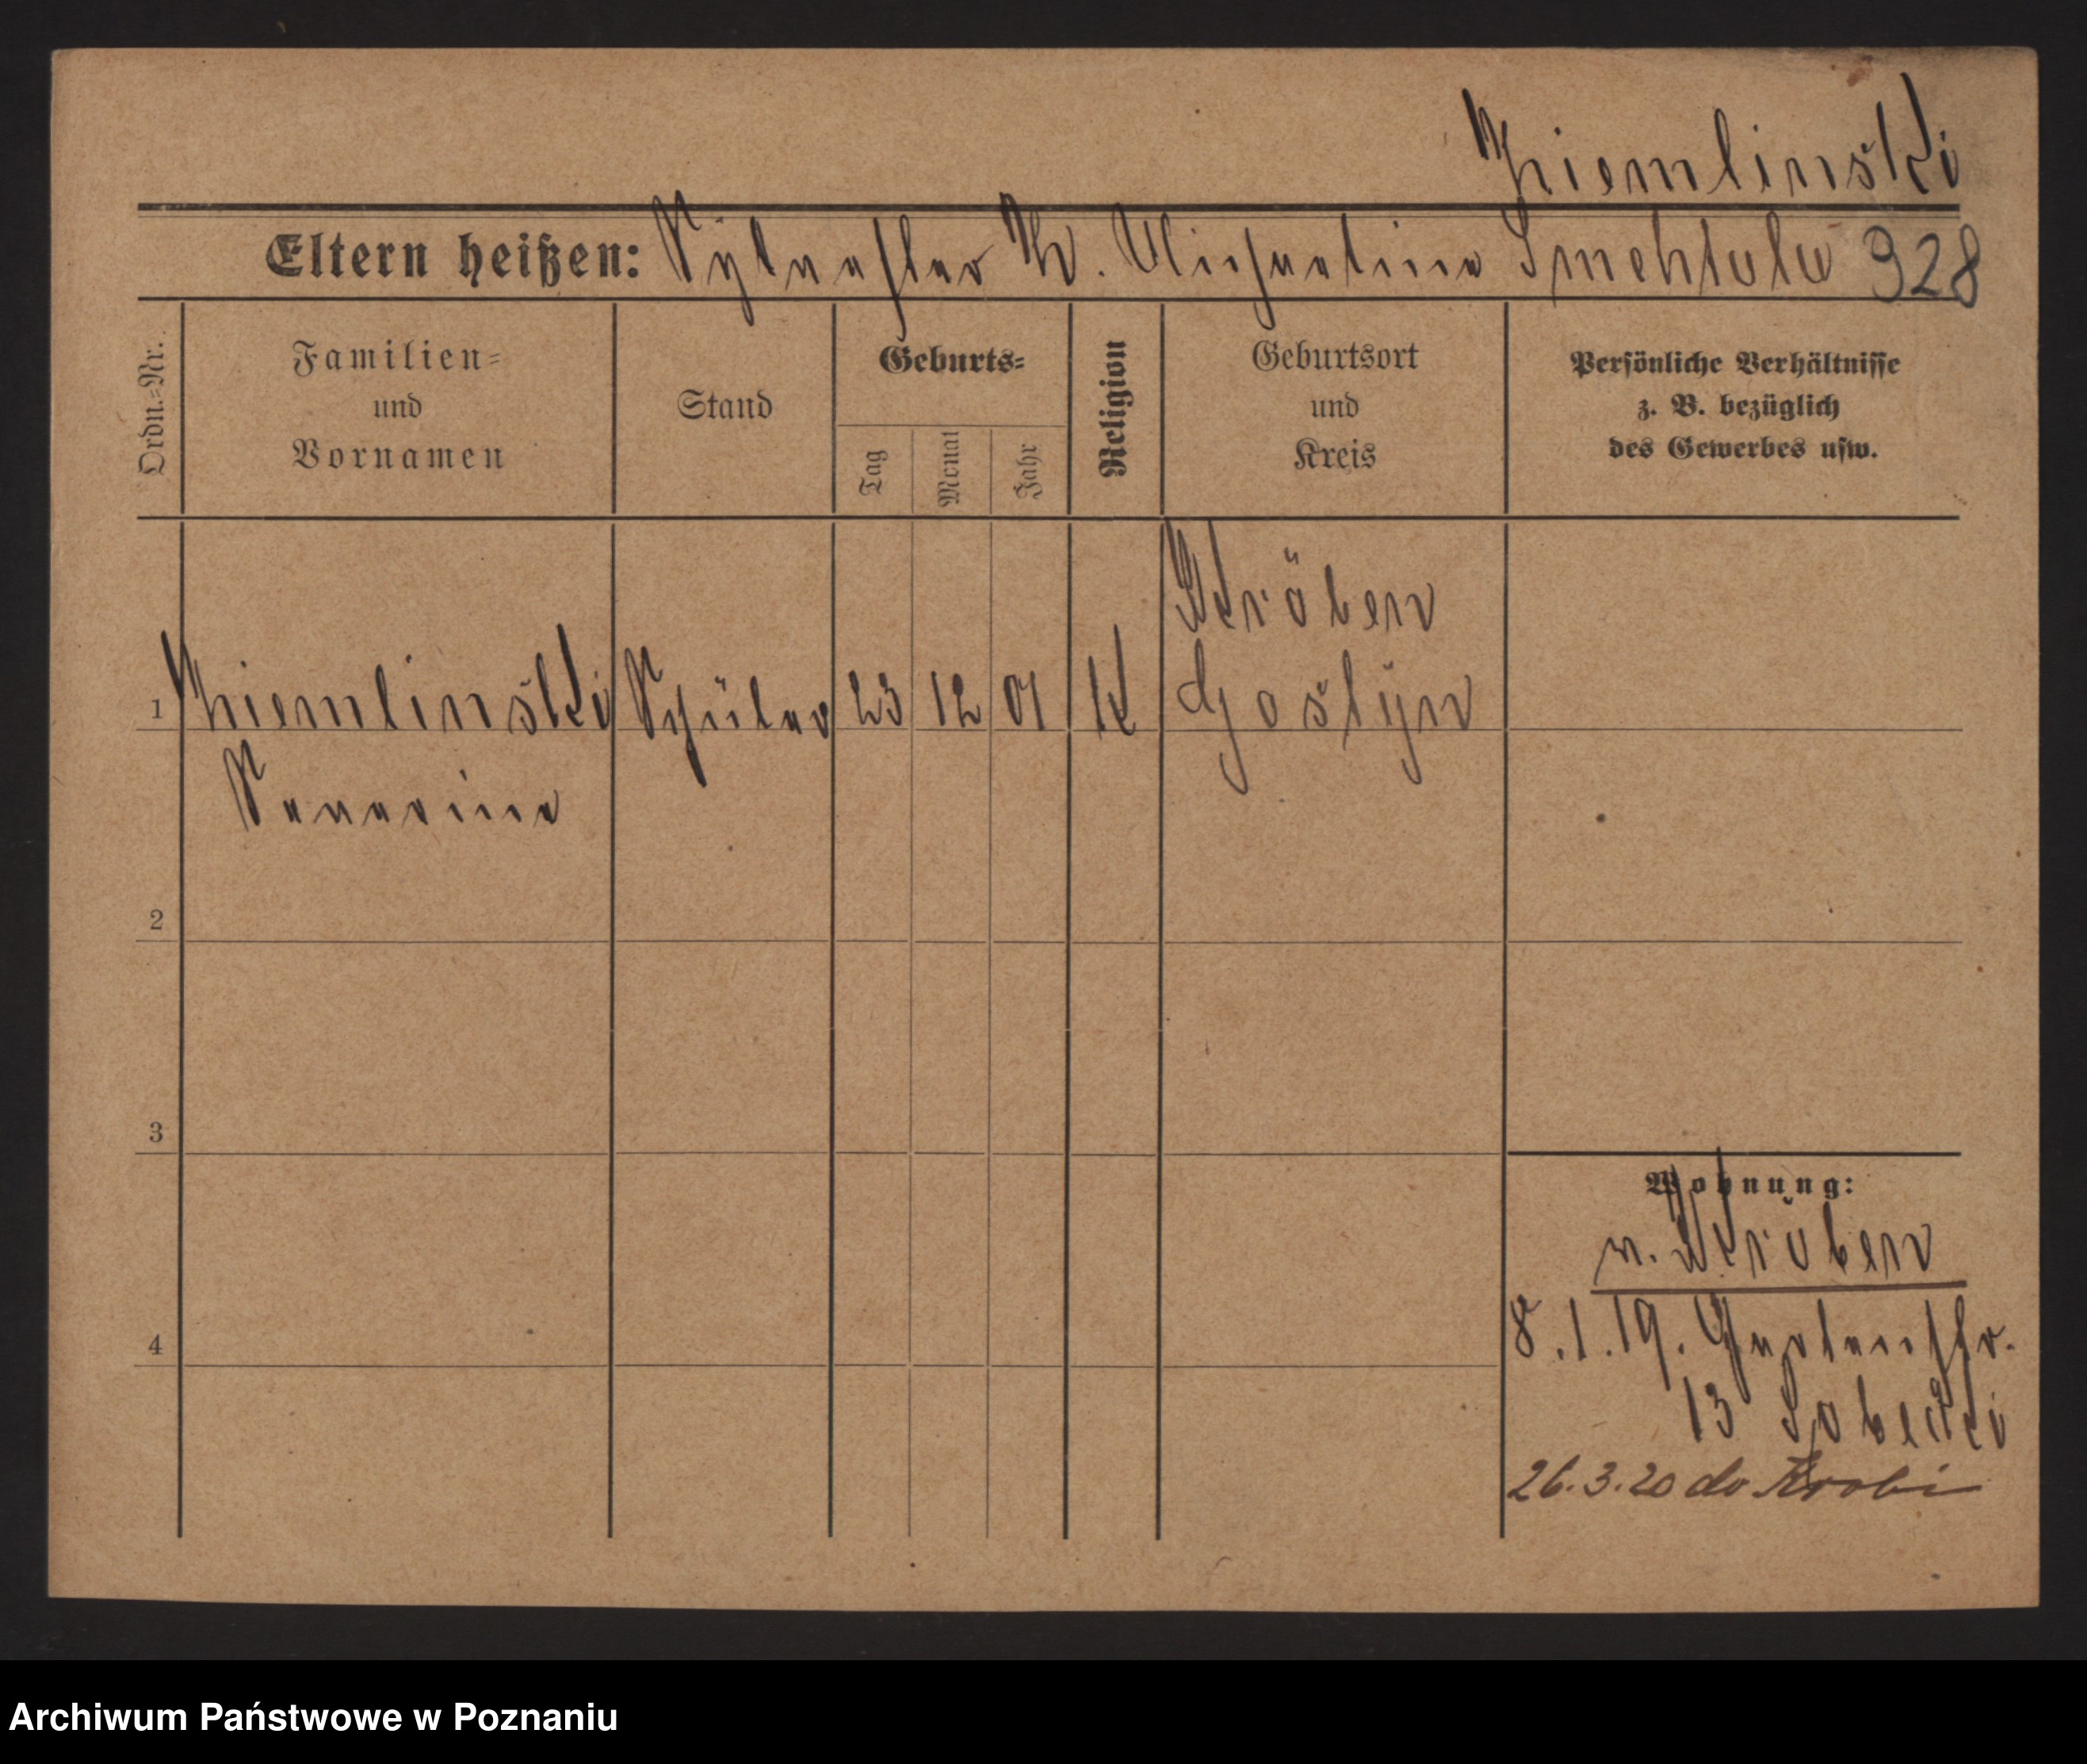 Niemlinski
Eltern heißen: Sylvester N. Michaelina Smektala 928
Ordn.-Nr.
Familien-
und
Vornamen
Stand
Geburts-
Tag
Monat
Jahr
Religion
Geburtsort
und
Kreis
Persönliche Verhältnisse
z. B. bezüglich
des Gewerbes usw.
Kröben
1 Niemlinski Schüler 23 12 01 K Gostyn
2
3
Wohnung:
v. Kröben
4
8.1.19. Gartenstr.
13 Sobecki
26.3.20 do Krobi
Archiwum Państwowe w Poznaniu